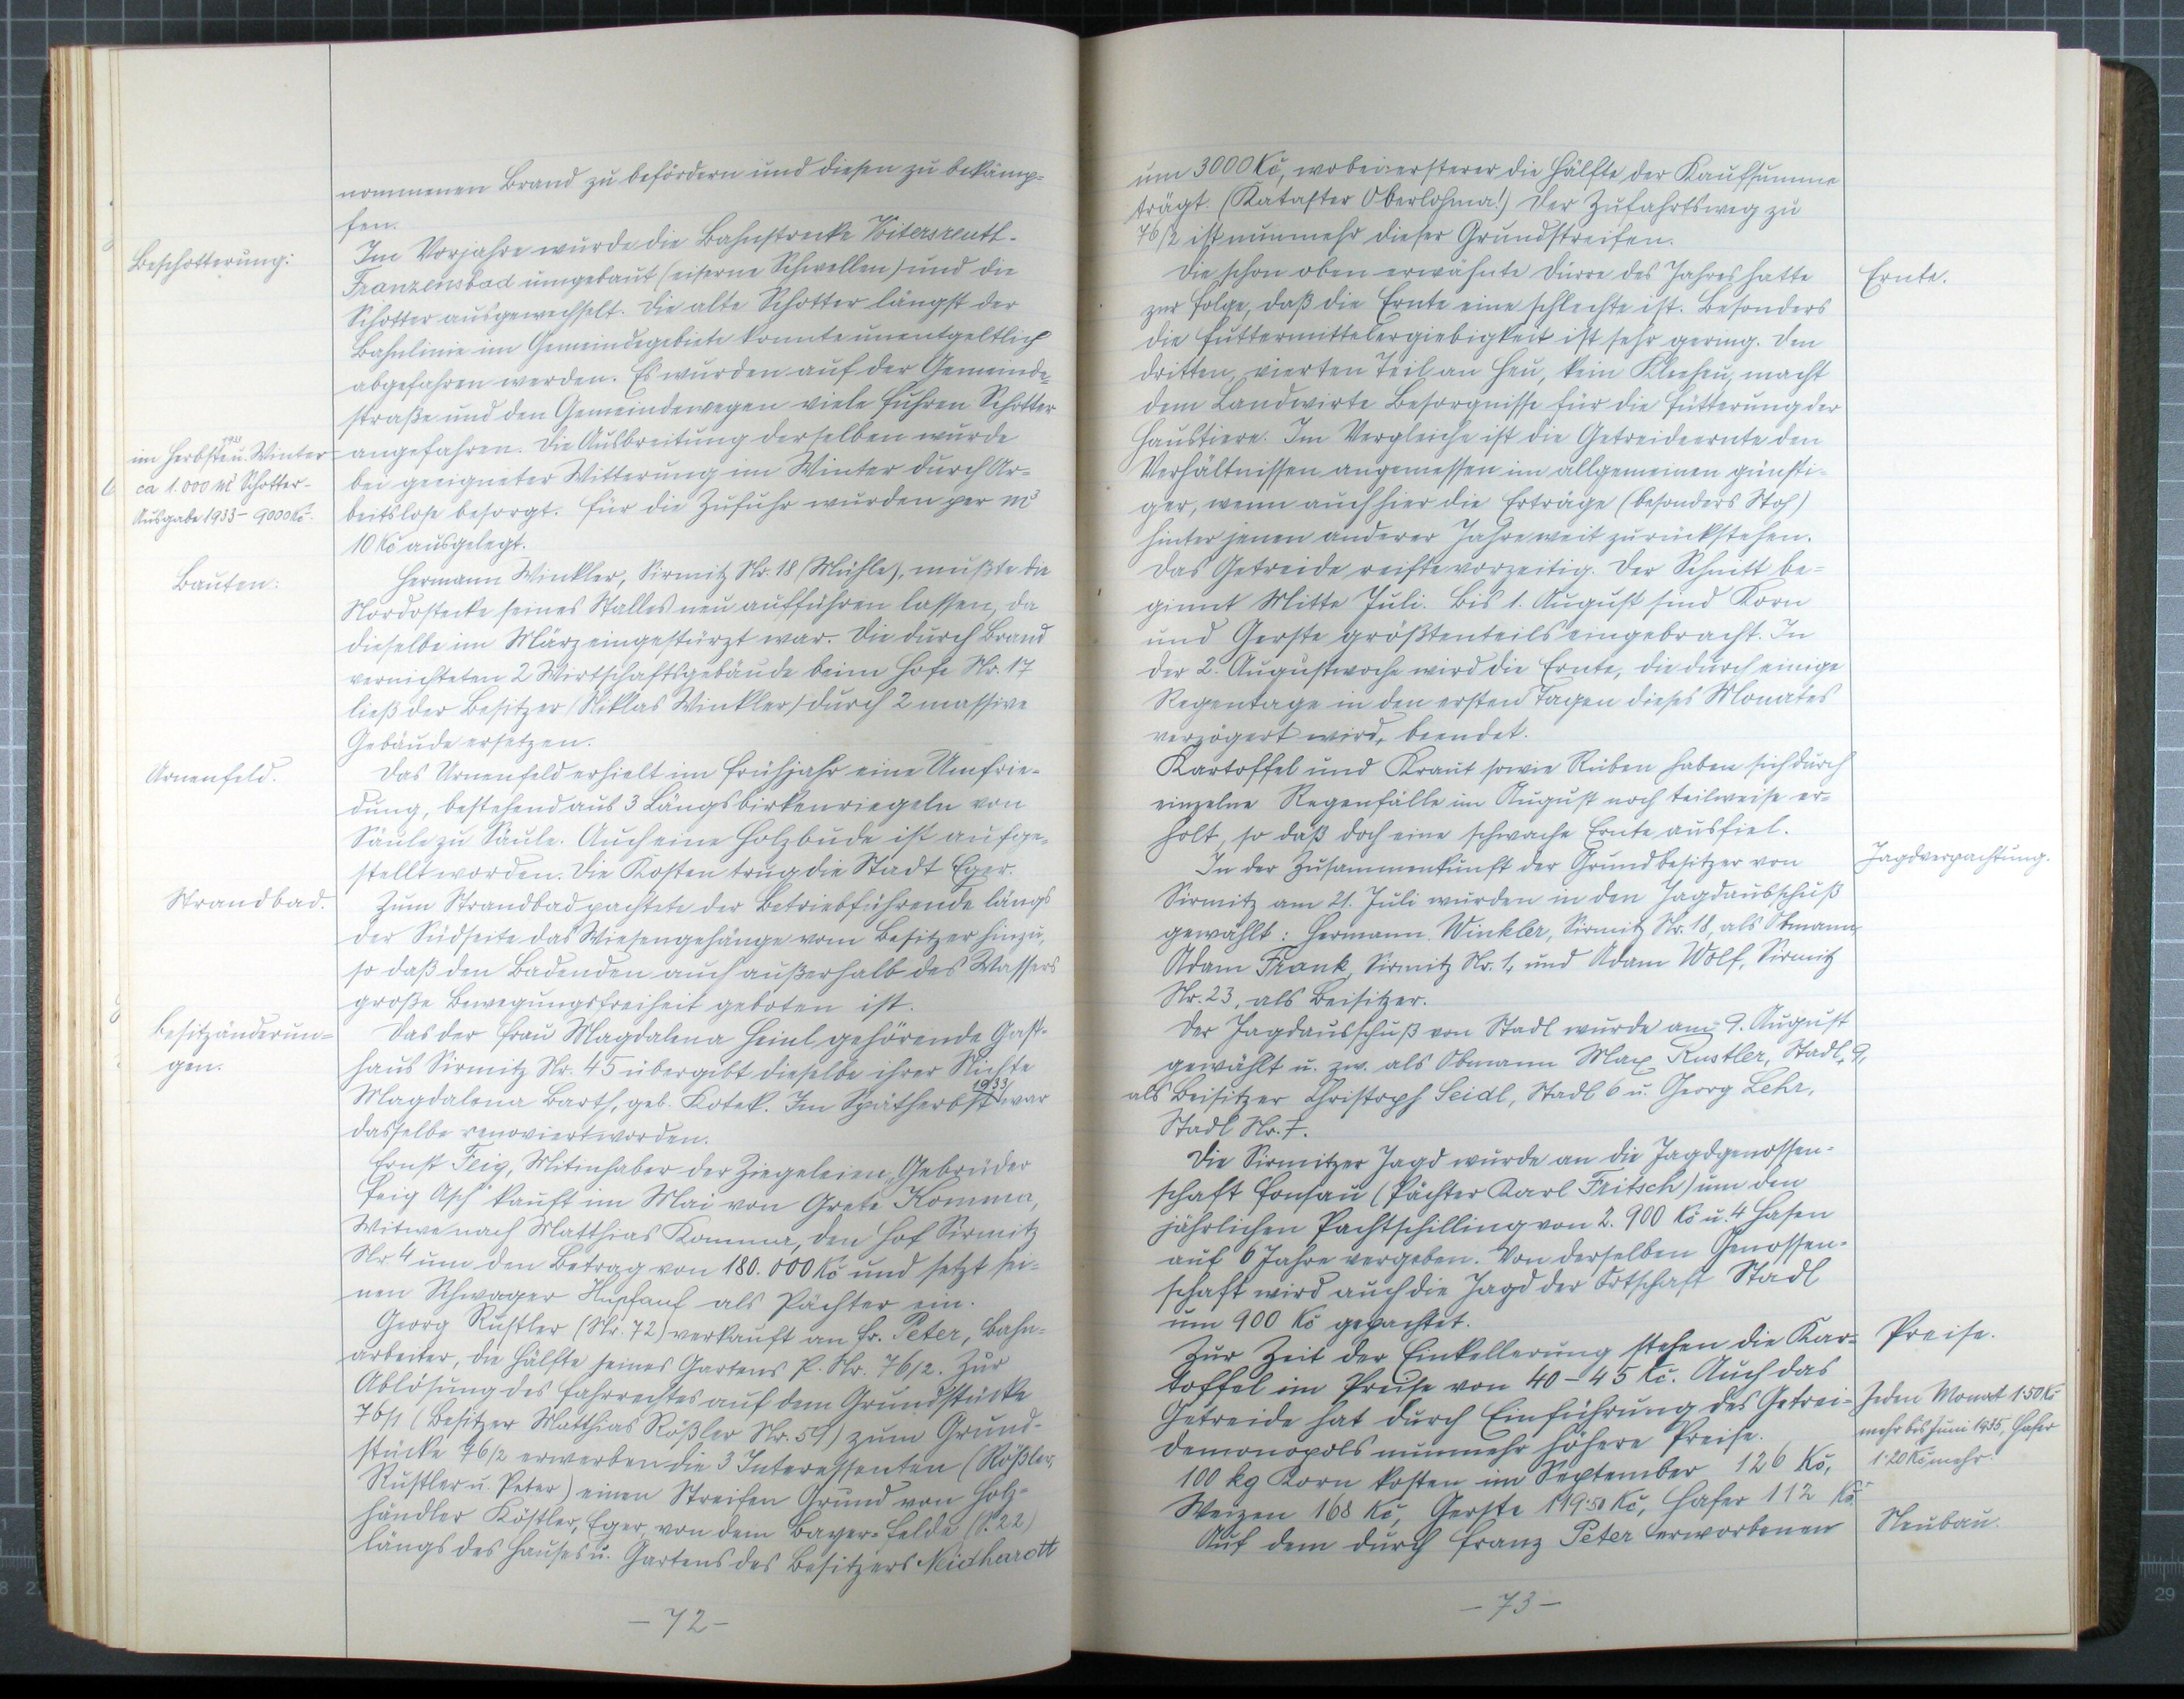 nommenen Brand zu befördern und diesen zu bekämp-
fen.
Beschotterung:
Im Vorjahre wurde die Bahnstrecke Voitersreuth-
Franzensbad umgebaut (eiserne Schwellen) und die
Schotter ausgewechselt. Die alte Schotter längst der
Bahnlinie im Gemeindegebiete konnte unentgeltlich
abgefahren werden. Es wurden auf der Gemeinde-
straße und den Gemeindewegen viele Fuhren Schotter
im Herbste u. Winter
ca 1.000 m³ Schotter-
Ausgabe 1933 - 9000 Kč.
angefahren. Die Ausbreitung derselben wurde
bei geeigneter Witterung im Winter durch Ar-
beitslose besorgt. Für die Zufuhr wurden per m³
10 Kč ausgelegt.
Bauten:
Hermann Winkler, Sirmitz Nr. 18 (Mühle), mußte die
Nordostecke seines Stalles neu aufführen lassen, da
dieselbe im März eingestürzt war. Die durch Brand
vernichteten 2 Wirtschaftsgebäude beim Hofe Nr. 17
ließ der Besitzer (Niklas Winkler) durch 2 massive
Gebäude ersetzen.
Urnenfeld.
Das Urnenfeld erhielt im Frühjahr eine Umfrie-
dung, bestehend aus 3 Längsbirkenriegeln von
Säule zu Säule. Auch eine Holzbude ist aufge-
stellt worden. Die Kosten trug die Stadt Eger.
Strandbad.
Zum Strandbad pachtete der Betriebführende längs
der Südseite das Wiesengehänge vom Besitzer hinzu,
so daß den Badenden auch außerhalb des Wassers
große Bewegungsfreiheit geboten ist.
Besitzänderun-
gen.
Das der Frau Magdalena Heinl gehörende Gast-
haus Sirmitz Nr. 45 übergibt dieselbe ihrer Nichte
Magdalena Barth, geb. Kotek. Im Spätherbst 1933 war
dasselbe renoviert worden.
Ernst Feig, Mitinhaber der Ziegeleien „Gebrüder
Feig Asch" kauft im Mai von Grete Komma,
Witwe nach Matthias Komma, den Hof Sirmitz
Nr 4 um den Betrag von 180.000 Kč und setzt sei-
nen Schwager Hupfauf als Pächter ein.
Georg Rustler (Nr. 72) verkauft an Fr. Peter, Bahn-
arbeiter, die Hälfte seines Gartens P. Nr. 76/2. Zur
Ablösung des Fahrrechtes auf dem Grundstücke
76/1 (Besitzer Matthias Rößler Nr. 59) zum Grund-
stücke 76/2 erwerben die 3 Interessenten (Rößler,
Rustler u. Peter) einen Streifen Grund von Holz-
händler Köstler, Eger, von dem Bayer-Felde (S. 22)
längs des Hauses u. Gartens des Besitzers Neidhardt
- 72 -
um 3000 Kč, wobei ersterer die Hälfte der Kaufsumme
trägt. (Kataster Oberlohma!) Der Zufahrtsweg zu
76/2 ist nunmehr dieser Grundstreifen.
Ernte.
Die schon oben erwähnte Dürre des Jahres hatte
zur Folge, daß die Ernte eine schlechte ist. Besonders
die Futtermittelergiebigkeit ist sehr gering. Den
dritten, vierten Teil an Heu, kein Kleeheu, macht
dem Landwirte Besorgnisse für die Fütterung der
Haustiere. Im Vergleiche ist die Getreideernte den
Verhältnissen angemessen im allgemeinen günsti-
ger, wenn auch hier die Erträge (besonders Stroh)
hinter jenen anderer Jahre weit zurückstehen.
Das Getreide reifte vorzeitig. Der Schnitt be-
ginnt Mitte Juli. Bis 1. August sind Korn
und Gerste größtenteils eingebracht. In
der 2. Augustwoche wird die Ernte, die durch einige
Regentage in den ersten Tagen dieses Monates
verzögert wird, beendet.
Kartoffel und Kraut sowie Rüben haben sich durch
einzelne Regenfälle im August noch teilweise er-
holt, so daß doch eine schwache Ernte ausfiel.
Jagdverpachtung.
In der Zusammenkunft der Grundbesitzer von
Sirmitz am 21. Juli wurden in den Jagdausschuß
gewählt: Hermann Winkler, Sirmitz Nr. 18, als Obmann,
Adam Frank, Sirmitz Nr. 1, und Adam Wolf, Sirmitz
Nr. 23, als Beisitzer.
Der Jagdausschuß von Stadl wurde am 9. August
gewählt u. zw. als Obmann Max Rustler, Stadl 9,
als Beisitzer Christoph Seidl, Stadl 6 u. Georg Lehr,
Stadl Nr. 7.
Die Sirmitzer Jagd wurde an die Jagdgenossen-
schaft Fonsau (Pächter Karl Fritsch) um den
jährlichen Pachtschilling von 2.900 Kč u. 4 Hasen
auf 6 Jahre vergeben. Von derselben Genossen-
schaft wird auch die Jagd der Ortschaft Stadl
um 900 Kč gepachtet.
Preise.
Zur Zeit der Einkellerung stehen die Kar-
toffel im Preise von 40-45 Kč. Auch das
Getreide hat durch Einführung des Getrei-
demonopols nunmehr höhere Preise.
Jeden Monat 1·50 Kč
mehr bis Juni 1935, Hafer
1·20 Kč mehr.
100 kg Korn kosten im September 126 Kč,
Weizen 168 Kč, Gerste 119·50 Kč, Hafer 112 Kč.
Neubau.
Auf dem durch Franz Peter erworbenen
- 73 -